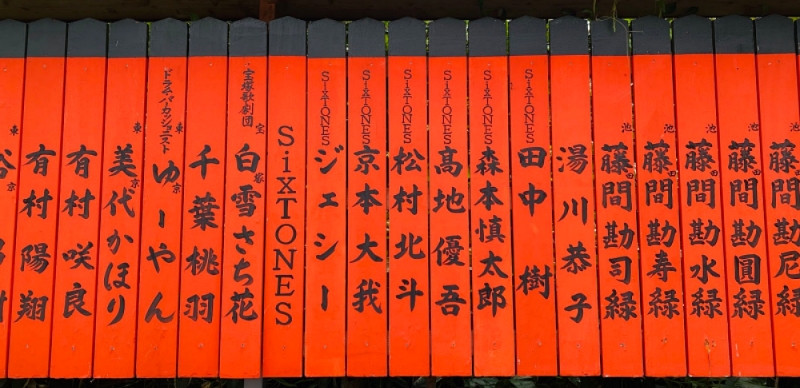 有村陽翔
有村咲良
東京 美代かほり
ドラマー・パーカッショニスト
東京 ゆーやん
千葉桃羽
宝塚歌劇団
宝塚 白雪さち花
SixTONES
SixTONES
ジェシー
SixTONES
京本大我
SixTONES
松村北斗
SixTONES
髙地優吾
SixTONES
森本慎太郎
SixTONES
田中樹
湯川恭子
池田 藤間勘司緑
池田 藤間勘寿緑
池田 藤間勘水緑
池田 藤間勘圓緑
池田 藤間勘尼緑